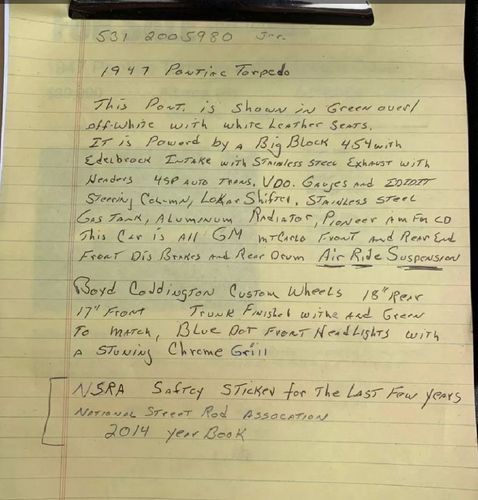 531 2005980 Jrr.
1947 Pontiac Torpedo
This Pont. is Shown in Green over/
off-white with white Leather Seats.
IT is Powerd by a Big Block 454 with
Edelbrock Intake with Stainless Steel Exhaust with
Headers 4SP Auto Trans, VDO. Gauges and IDIDIT
Steering Column, Lokar Shifter, Stainless Steel
Gas Tank, Aluminum Radiator, Pioneer Am Fm CD
This Car is All GM mtCarlo Front and Rear End
Front Dis Brakes and Rear Drum Air Ride Suspension
Boyd Coddington Custom Wheels 18" Rear
17" Front Trunk Finished withe and Green
To match, Blue Dot Front HeadLights with
a Stuning Chrome Grill
NSRA Saftey Sticker for The Last Few years
National Street Rod Assocation
2014 year Book